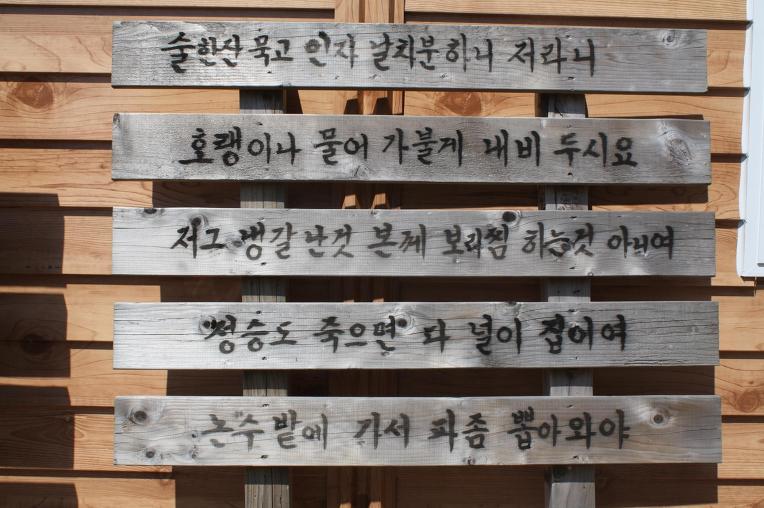 술한잔 묵고 인자 날처분하니 저라니
호랭이나 물어 가불게 내비 두시요
저그 땡갈 난것 본께 보리찜 하는것 아니여
정승도 죽으면 다 널이 집이여
논수밭에 가서 파좀 뽑아와야